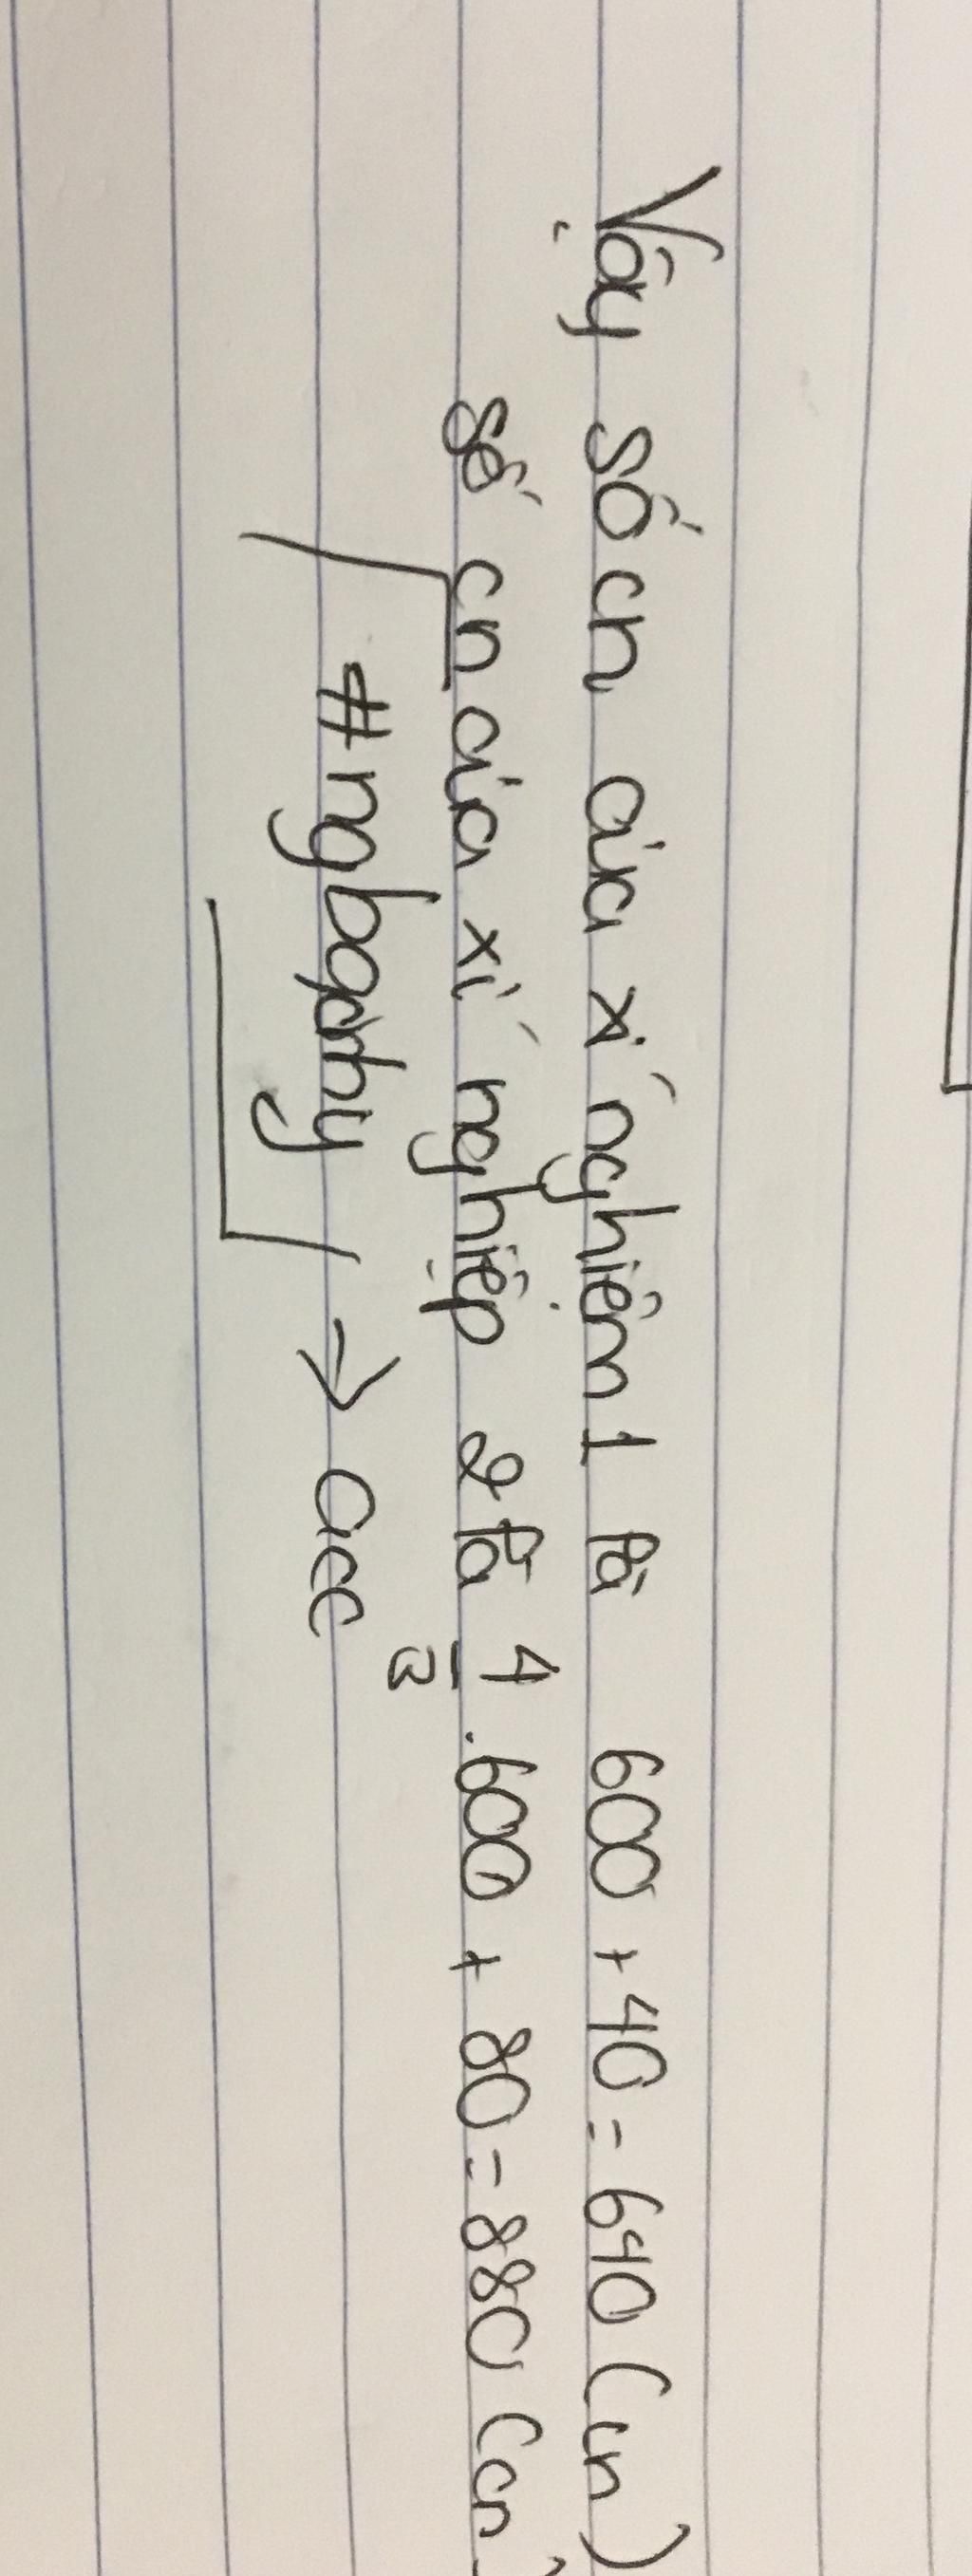 Vậy số cn của xí nghiệm 1 là 600 + 40 = 640 (cn)
số cn của xí nghiệp 2 là 4/3 . 600 + 80 = 880 (cn)
#ngbqchy → acc